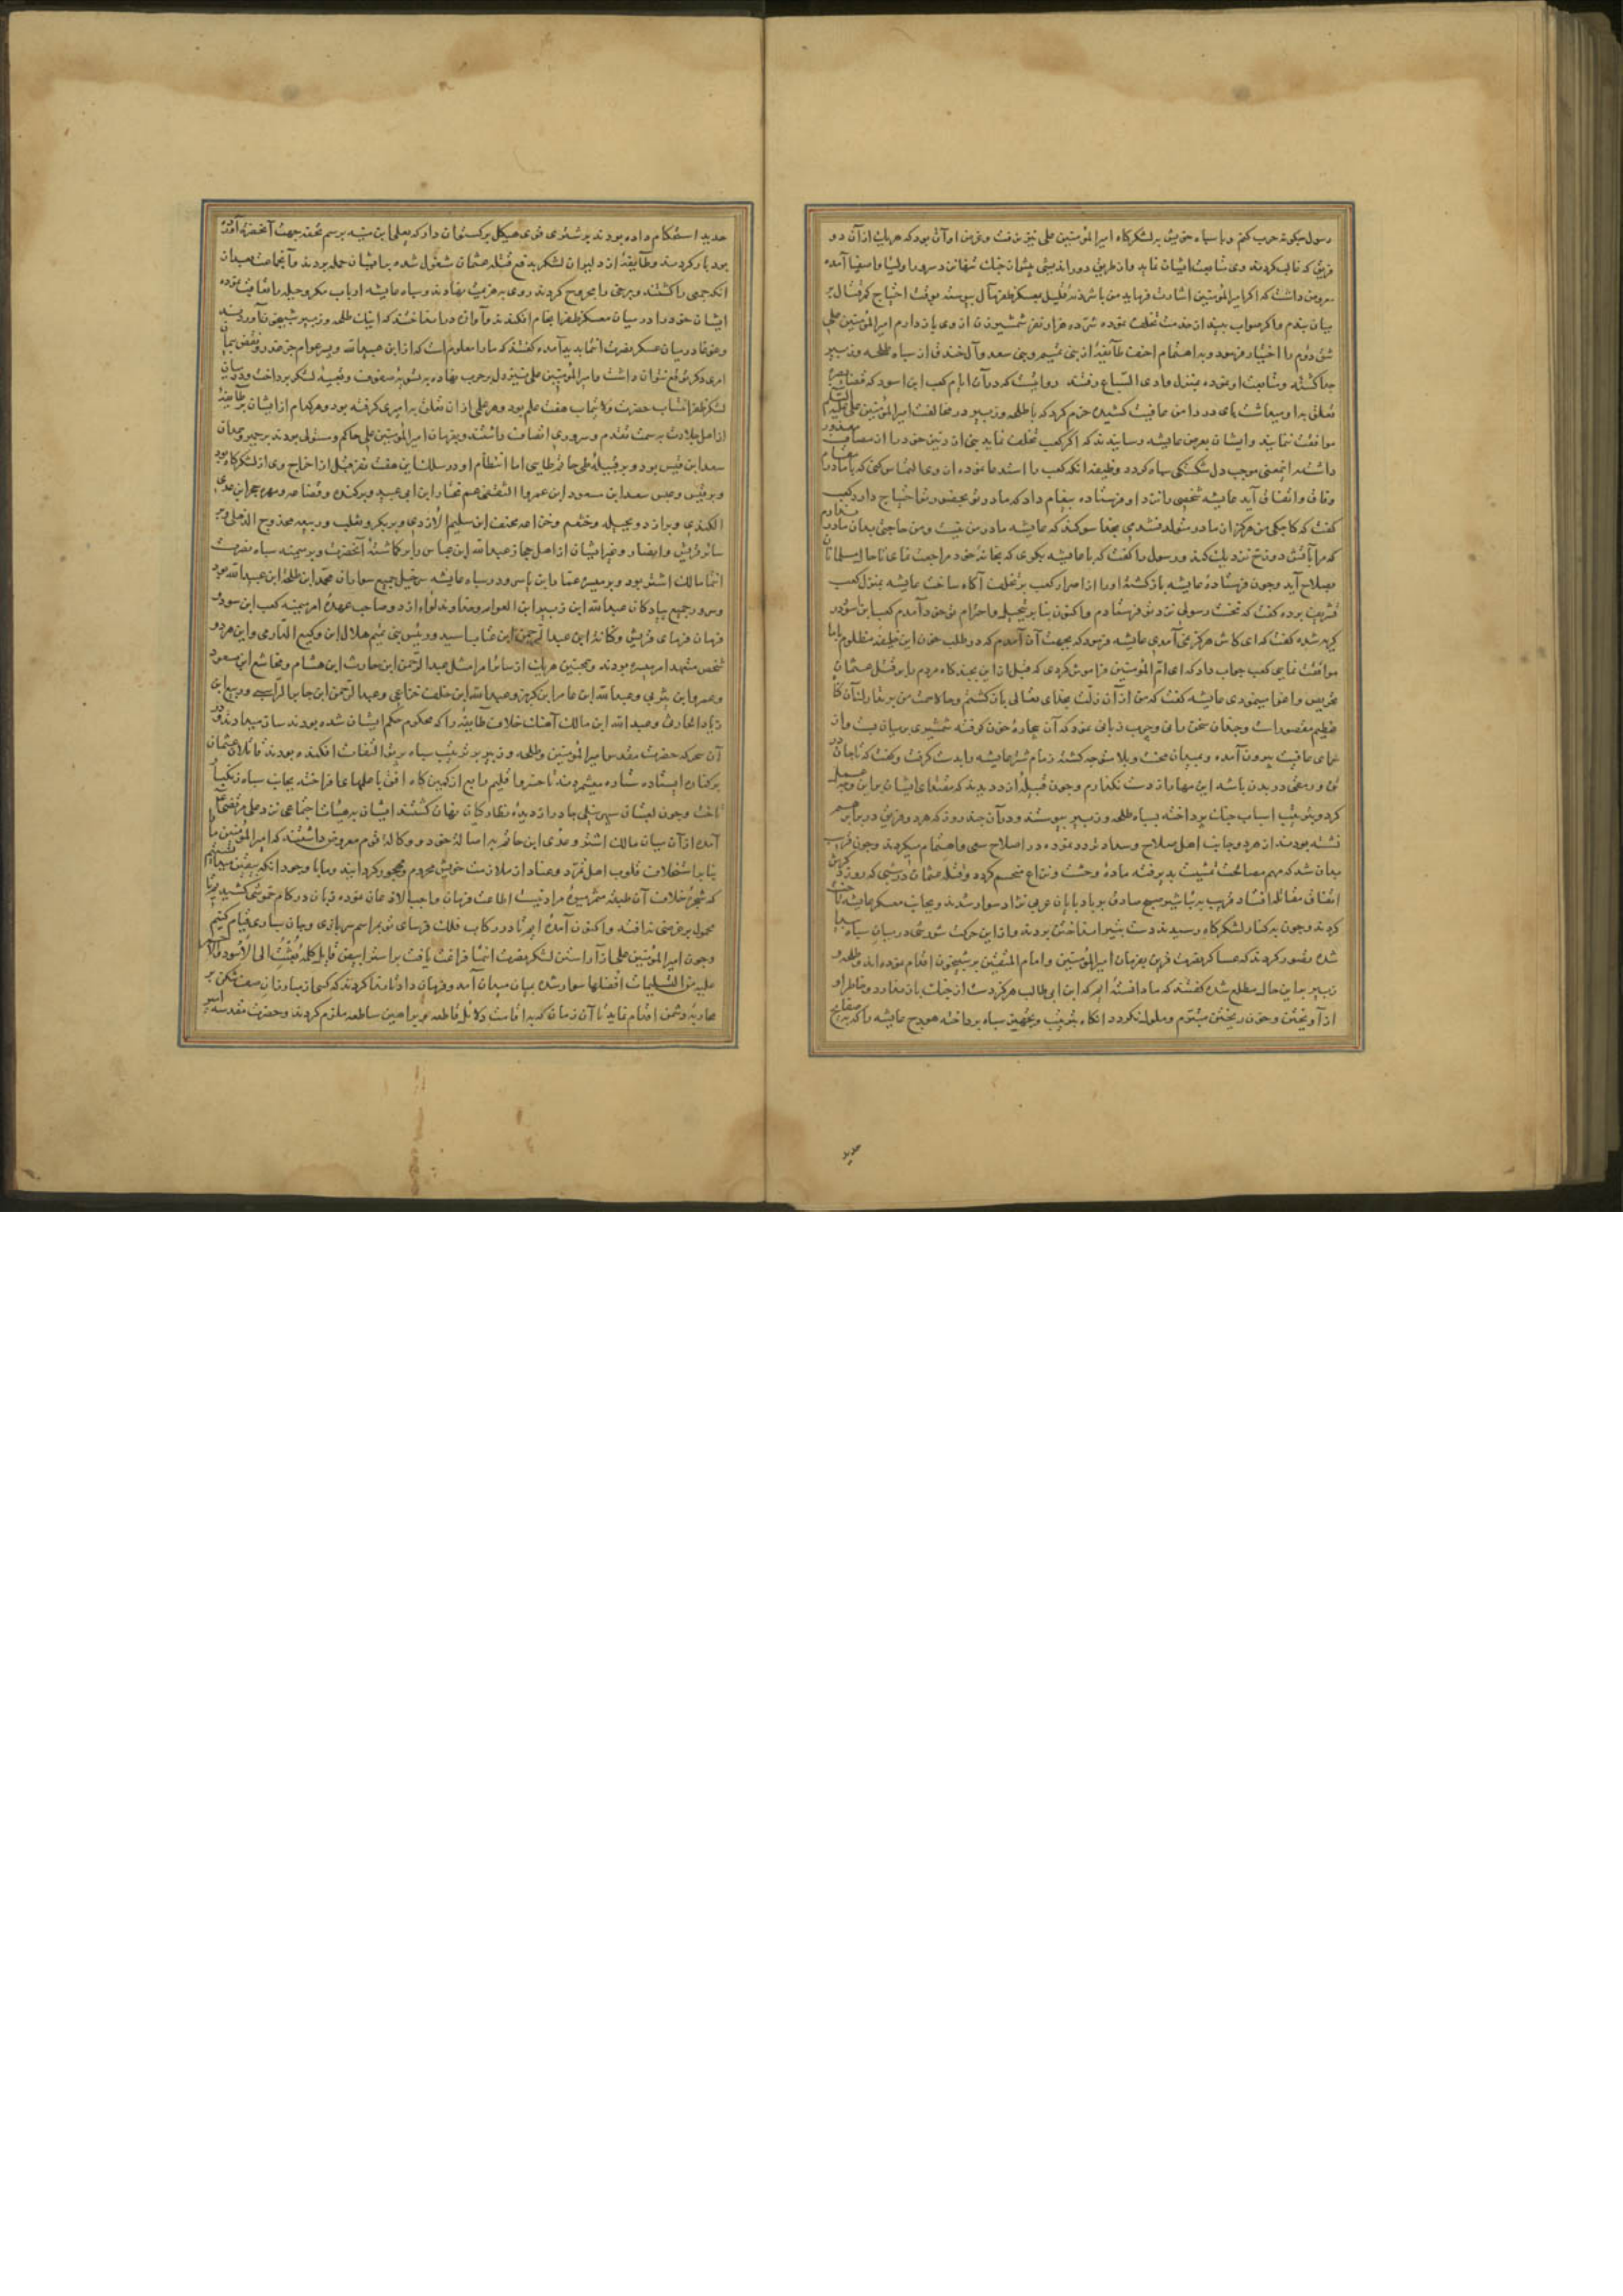 رسول چکونه حرب کنم و با سپاه خویش بر لشکرکاه امیرالمؤمنین علی نیز نرفت و غرض او آن بود که هر یک از آن دو
فریق که غالب کردند وی متابعت ایشان نماید و از طریق دوراندیشی پیشوای نزد سرور اولیا و اصفیا آمده
معروض داشت که اگر امیرالمؤمنین اشارت فرماید من با شرذمهٔ قلیل بمعسکر ظفر مآل پیوسته بوقت احتیاج کمر قتال بر
میان بندم و اگر صواب بیند از خدمت تخلف نموده شرّ ده هزار نفر شمشیرزن از وی باز دارم امیرالمؤمنین علی
شق دوم را اختیار فرمود و به اهتمام احنف طایفهٔ از بنی تمیم و بنی سعد و آل خندف از سپاه طلحه و زبیر
جدا کشته و متابعت او نموده بمنزل وادی السباع رفتند روایتست که در آن ایام کعب ابن اسود که قضاء بصره
تعلق بدو میداشت پای در دامن عافیت کشیده عزم کرد که با طلحه و زبیر در مخالفت امیرالمؤمنین علی علیه السلم
موافقت ننماید و ایشان بعرض عایشه رسانیدند که اگر کعب تخلف نماید بنی ازد نیز خود را از مصاف معذور
داشته اینمعنی موجب دل شکستکی سپاه کردد وظیفه آنکه کعب را استدعا نموده از وی التماس کنی که با ما در مقام
وفاق و اتفاق آید عایشه شخصی را نزد او فرستاده پیغام داد که مادر تو بحضور تو احتیاج دارد کعب
کفت که کاجکی من هرکز از مادر متولد نشدمی بخدا سوکند که عایشه مادر من نیست و من حاجتی بدان مادر ندارم
که مرا بآتش دوزخ نزدیک کند و رسول را کفت که با عایشه بکوی که بخانهٔ خود مراجعت نمای تا حال مسلمانان
بصلاح آید و چون فرستادهٔ عایشه بازکشته او را از اصرار کعب بر تخلف آکاه ساخت عایشه بمنزل کعب
تشریف برده کفت که نخست رسولی نزد تو فرستادم و اکنون بنا بر تبجیل و احترام تو خود آمدم کعب ابن سور در
کریه شده کفت که ای کاش هرکز نمی‌آمدی عایشه فرمود که بجهت آن آمدم که در طلب خون این خلیفه مظلوم با ما
موافقت نمایی کعب جواب داد که ای ام المؤمنین فراموش کردی که قبل ازین بچند کاه مردم را بر قتل عثمان
تحریص و اغوا مینمودی عایشه کفت که من از آن زلت بخدای تعالی بازکشتم و حالا همت من بر تدارک آن کناه
عظیم مقصور است و چندان سخن رانی و چرب زبانی نمود که آن بیچاره خون کرفته شمشیری بر میان بست و از
سرای عافیت بیرون آمده و بمیدان محنت و بلا متوجه کشته زمام شتر عایشه را بدست کرفت و کفت که تا جان در
تن و رمقی در بدن باشد این مهار را از دست نکذارم و چون قبیلهٔ ازد دیدند که مقتدای ایشان بر این وجه عمل
کرد بترتیب اسباب جنک پرداخته بسپاه طلحه و زبیر پیوستند و در آن چند روز که هر دو فریق در برابر هم
نشسته بودند از هر دو جانب اهل صلاح و سداد تردد نموده در اصلاح سعی و اهتمام میکردند و چون قریب
بدان شد که مهم مصالحت تمشیت پذیرفته مادهٔ وحشت و نزاع منحسم کردد و قتلهٔ عثمان در شبی که روز دکر
اتفاق مقاتله افتاد قریب بتباشیر صبح صادق بر بادپایان عربی نژاد سوار شدند و بجانب معسکر عایشه تاخت
کردند و چون بکنار لشکرکاه رسیدند دست بتیر انداختن بردند و از این حرکت شورشی در میان سپاه پیدا
شده تصور کردند که عساکر نصرت قرین بفرمان امیرالمؤمنین و امام المتقین بر شبیخون اقدام نموده‌اند و طلحه و
زبیر برین حال مطلع شده کفتند که ما دانسته ایم که ابن ابی طالب هرکز دست از جنک باز ندارد و خاطر او
از آویختن و خون ریختن متبرّم و ملول نکردد آنکاه بترتیب و تجهیز سپاه پرداخته هودج عایشه را که بصفایح
حدید
حدید استحکام داده بودند بر شتری قوی هیکل برکستوان دار که یعلی ابن منیه برسم تحفه جهت آنحضره آورده
بود بار کردند و طایفهٔ از دلیران لشکر بدفع قتلهٔ عثمان مشغول شده بر ایشان حمله بردند و آنجماعت بعد از
آنکه جمعی را کشتند و برخی را مجروح کردند روی بهزیمت نهادند و سپاه عایشه ارباب مکر و حیله را تعاقب نموده
ایشان خود را در میان معسکر ظفر انجام افکندند و آوازه در انداختند که اینک طلحه و زبیر شبیخون آوردند
و غوغا در میان عسکر نصرت انتما پدید آمده کفتند که ما را معلوم است که از ابن عبیدالله و پسر عوام جز غدر و نقض پیمان
امری دکر توقع نتوان داشت و امیرالمؤمنین علی نیز دل بر حرب نهاده بتسویهٔ صفوف و تعبیهٔ لشکر پرداخت و در میان
لشکر ظفر انتساب حضرت ولایتمآب هفت علم بود و هر علمی از آن تعلق بامیری کرفته بود و هر کدام از ایشان بر طایفهٔ
از اهل جلادت بسمت تقدم و سروری اتصاف داشتند و بفرمان امیرالمؤمنین علی حاکم و مستولی بودند بر حمیر و همدان
سعد ابن قیس بود و بر قبیلهٔ طی حاتم طایی اما انتظام او در سلک این هفت نفر قبل از اخراج وی از لشکرکاه بود
و بر قیس و عبس سعد ابن مسعود ابن عمرو الثقفی عم مختار ابن ابی عبید و بر کنده و قضاعه و مهره حجر ابن عدی
الکندی و بر ازد و بجیله و خثعم و خزاعه مخنف ابن سلیم الازدی و بر بکر و تغلب و ربیعه محدوج الذهلی و بر
سائر قریش و انصار و غیر ایشان از اهل حجاز عبدالله ابن عباس را بر کماشته آنحضرت و بر میمنه سپاه نصرت
انتما مالک اشتر بود و بر میسره عمار ابن یاسر و در سپاه عایشه سرخیل جمیع سواران محمد ابن طلحة ابن عبیدالله بود
و سرور جمیع پیادکان عبدالله ابن زبیر ابن العوام و خداوند لواء ازد و صاحب عهدهٔ امر میمنه کعب ابن سور و
فرمان فرمای قریش و کنانه ابن عبدالرحمن ابن عتاب اسید و رئیس بنی تمیم هلال ابن وکیع الدارمی و این هر دو
شخص متعهد امر میسره بودند و همچنین هر یک از سائر امرا مثل عبدالرحمن ابن حارث ابن هشام و مجاشع ابن مسعود
و عمرو ابن یثربی و عبدالله ابن عامر ابن کریز و عبدالله ابن خلف خزاعی و عبدالرحمن ابن جابر الراسبی و ربیع ابن
زیاد الحارثی و عبدالله ابن مالک آهنک خلاف طایفهٔ را که محکوم حکم ایشان شده بودند ساز میدادند و در
آن معرکه حضرت مقدسه امیرالمؤمنین و طلحه و زبیر بر ترتیب سپاه پرتو التفات افکنده بودند قاتلان عثمان
بر کناره ایستاده ستاره میشمردند تا خسرو اقلیم رابع از کمین کاه افق با علمهای افراخته بجانب سپاه زنکبار
تاخت و چون لعبتان سپهر نیلی چادر از دیدهٔ نظارکان نهان کشتند ایشان بهیئات اجتماعی نزد علی مرتضی
آمده از آن میان مالک اشتر و عدی ابن حاتم به اصالهٔ خود و وکالهٔ قوم معروض داشتند که امیرالمؤمنین ما را
بنا بر استخلاف قلوب اهل تمرّد و عناد از ملازمت خویش محروم و مهجور کردانید و ما با وجود آنکه بیقین میدانیم
که شجرهٔ خلاف آن طبقه مثمر میوهٔ مراد نیست اطاعت فرمان واجب الاذعان نموده زبان در کام خموشی کشیدیم تا
محمول بر غرضی نه افتد و اکنون آمده‌ایم تا در رکاب فلک فرسای تو بمراسم سربازی و جان سپاری قیام کنیم
و چون امیرالمؤمنین علی از آراستن لشکر نصرت انتما فراغت یافت بر استر ابیض قایل کلمهٔ بُعثتُ الی الاسود والاحمر
علیه من التسلیمات افضلها سوار شده بمیان میدان آمد و فرمان داد تا ندا کردند که کسی از مبارزان صف شکن بر
محاربهٔ دشمن اقدام ننماید تا آن زمان که به اقامت دلائل قاطعه و براهین ساطعه ملزم کردند و حضرت مقدسه امیر